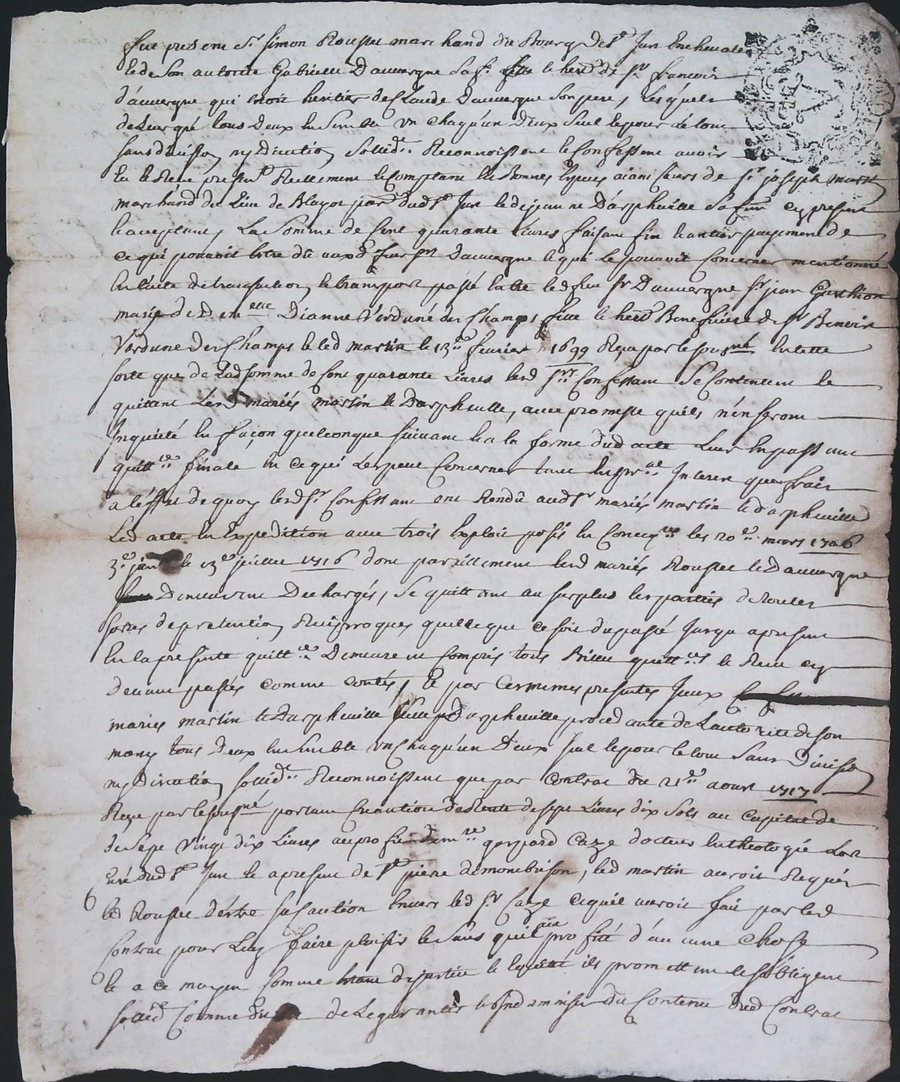 fut present Sr Simon Rousset marchand du Bourg de St Just En chevalet
et de son autorité Gabrielle Dauvergne sa fe fille et herre de Sr francois
d'auvergne qui étoit heritier de Claude Dauvergne son pere, Lesquels
de leur gré tous deux Ensemble un chaqu'un d'eux seul et pour le tout
sans division ny discution solidt Reconnoissent et Confessent avoir
Eu et Receu presentt Réellement et Comptant En bonnes Especes aiant Cours de Sr joseph martin
marchand du Lieu de par. dudt St Just et de jeanne Darpheuille sa fem cy present
Et acceptant, La Somme de Cent quarante Livres faisant fin Et antier payement de
ce qui pouvoit Estre dû auxd Dauvergne et que Le pouvoit Concerner mentionné
En l'acte de transaction et transport passé Entre led feu Sr Dauvergne Sr jean
marié de Dianne Verdune des Champs fille et herre Beneficiere de Sr Benoit
Verdune des Champs et led martin le 13me fevrier 1699 Reçu par le sousgné En telle
sorte que de Lad somme de Cent quarante Livres Lesd Confessant Se contentent et
quittent Lesd mariés martin et Darpheuille, avec promesse qu'ils n'en seront
Inquieté En façon quelconque suivant Et a la forme dud acte Leur En passant
quittce finale En ce qui Les peut Concerner tant En prāl Interest que frais
a l'effet de quoy lesd Sr Confessant ont Rendû auxd Sr mariés martin et darpheuille
Led acte En Expedition avec trois Exploit posés En Conseqce les 20me mars 1706
3e et 13me 1716 dont pareillement lesd mariés Rousset et Dauvergne
Demeurent Dechargés, Se quittent au surplus les parties de toutes
sortes de pretention Reciproques quelleque ce soit du passé Jusqu'a present
En la presente quittce Demeurent Compris tous Billiet quittces et Receu cy
devant passés comme contés, Et par Cesmemes presentes Iceux
mariés martin et Darpheuille Darpheuille procedante de L'autorité de son
mary tous deux Ensemble un Chaqu'un d'eux seul et pour le tout Sans Division
ny Discution solidt Reconnoissent que par Contrat du 21me aoust 1717
Reçu par le sousgné portant Creation de Rente de sept Livres dix Sols au Capital de
Sept vingt dix Livres au profit de mre gaspard Caze docteur En theologie Lors
curé dud St Just et a present de St pierre de monbrison, led martin auroit Requis
led Rousset d'Etre sa Caution Envers led Sr Caze ce qu'il auroit fait par led
Contrat pour Luy faire plaisir et Sans qu'il ait profité d'aucune Chose
Et a ce moyen comme de justice et Equité ils promettent et s'obligent
solidt Comme de Le garantir et Indemniser du Contenu Dud Contrat